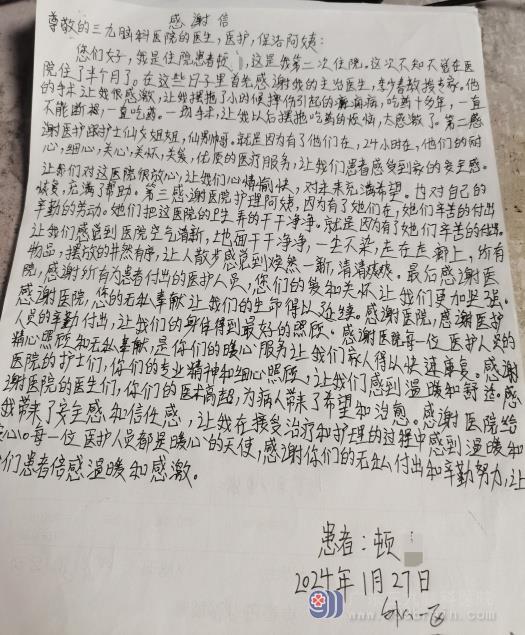 感谢信
尊敬的三九脑科医院的医生，医护，保洁阿姨：
您们好，我是住院患者顿，这是我第二次住院。这次不知不觉在医
院住了半个月了。在这些日子里首先感谢我的主治医生，李少春教授专家。他
的手术让我很感激，让我摆拖了小时候摔伤引起的癫痫病，吃药十多年，一直
不能断根，一直吃药。一场手术，让我以后摆拖吃药的烦恼，太感激了。第二感
谢医护跟护士仙女姐姐，仙男帅哥。就是因为有了他们在，24小时在，他们的耐
心，细心，关心，关怀，关爱，优质的医疗服务，让我们患者感受到家的安全感。
让我们对这医院很放心，让我们心情愉快，对未来充满希望。也对自己的
恢复，充满了帮助。第三感谢医院护理阿姨，因为有了她们在，她们辛苦的付出
辛勤的劳动。她们把这医院的卫生弄的干干净净。就是因为有了她们辛苦的付出。
让我们感觉到医院空气清新，地面干干净净，一尘不染，走在走廊上，所有
物品，摆放的井然有序，让人散步感觉到焕然一新，清清爽爽。最后感谢医
院，感谢所有为患者付出的医护人员，您们的爱和关怀让我们更加坚强。
感谢医院，您的无私奉献让我们的生命得以延续。感谢医院，感谢医护
人员的辛勤付出，让我们的身体得到最好的照顾。感谢医院每一位医护人员的
精心照顾和无私奉献，是你们的暖心服务让我们家人得以快速康复。感谢
医院的护士们，你们的专业精神和细心照顾，让我们感到温暖和舒适。感
谢医院的医生们，你们的医术高超，为病人带来了希望和治愈。感谢医院给
我带来了安全感和信任感，让我在接受治疗和护理的过程中感到温暖和
心。每一位医护人员都是暖心的天使，感谢你们的无私付出和辛勤努力，让
们患者倍感温暖和感激。
患者：顿
2024年1月27日